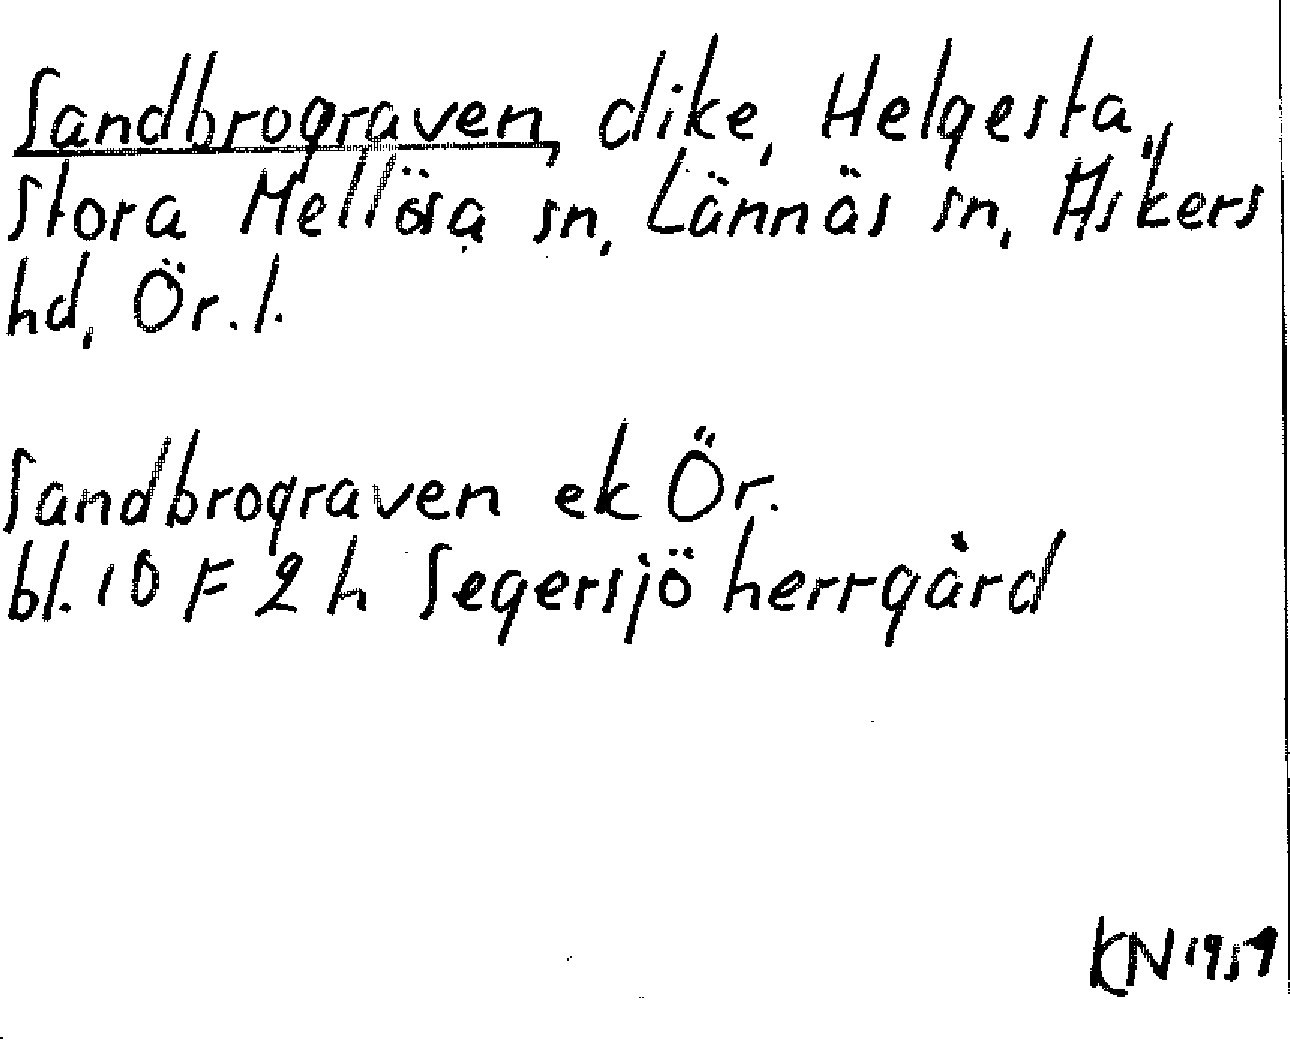 Sandbrograven, dike, Helgesta,
Stora Mellösa sn, Lännäs sn, Askers
hd, Ör. l.
Sandbrograven ek Ör.
bl. 10 F 2 h Segersjö herrgård
KN 1959